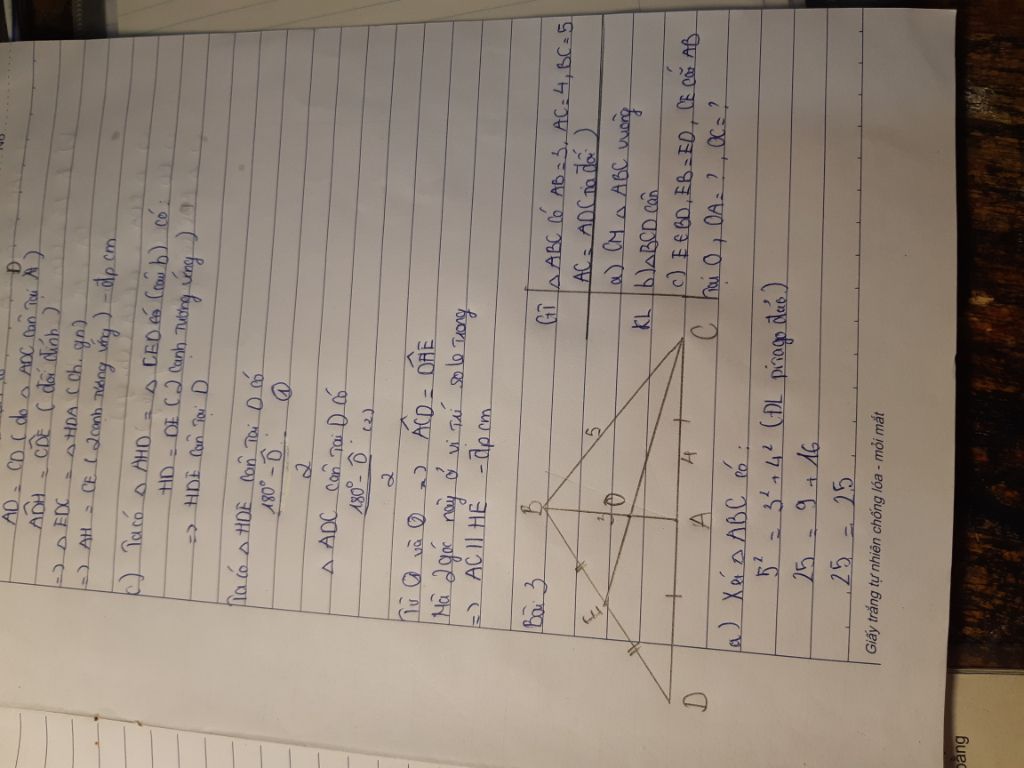 AD = CD (do △ ADC cân tại D
ADH = CDE (đối đỉnh)
=> △ EDC = △ HDA (ch. gn)
=> AH = CE (2 cạnh tương ứng) - đpcm
c) Ta có △ AHD = △ CED có (câu b) có:
HD = DE (2 cạnh tương ứng)
=> HDE cân tại D
Ta có △ HDE cân tại D có
180° - D
2
①
△ ADC cân tại D có
180° - D
2
(2)
Từ ① và ② => ACD = DHE
Mà 2 góc này ở vị trí so le trong
=> AC || HE - đpcm
Bài 3
GT △ ABC có AB = 3, AC = 4, BC = 5
AC = AD
KL a) CM △ ABC vuông
b) △ BCD cân
c) E ∈ BD, EB = ED, CE cắt AB
tại O, OA = ?, OC = ?
B
5
3
O
E
D
A
4
C
a) Xét △ ABC có:
5² = 3² + 4² (ĐL pitago đảo)
25 = 9 + 16
25 = 25
Giấy trắng tự nhiên chống lóa - mỏi mắt